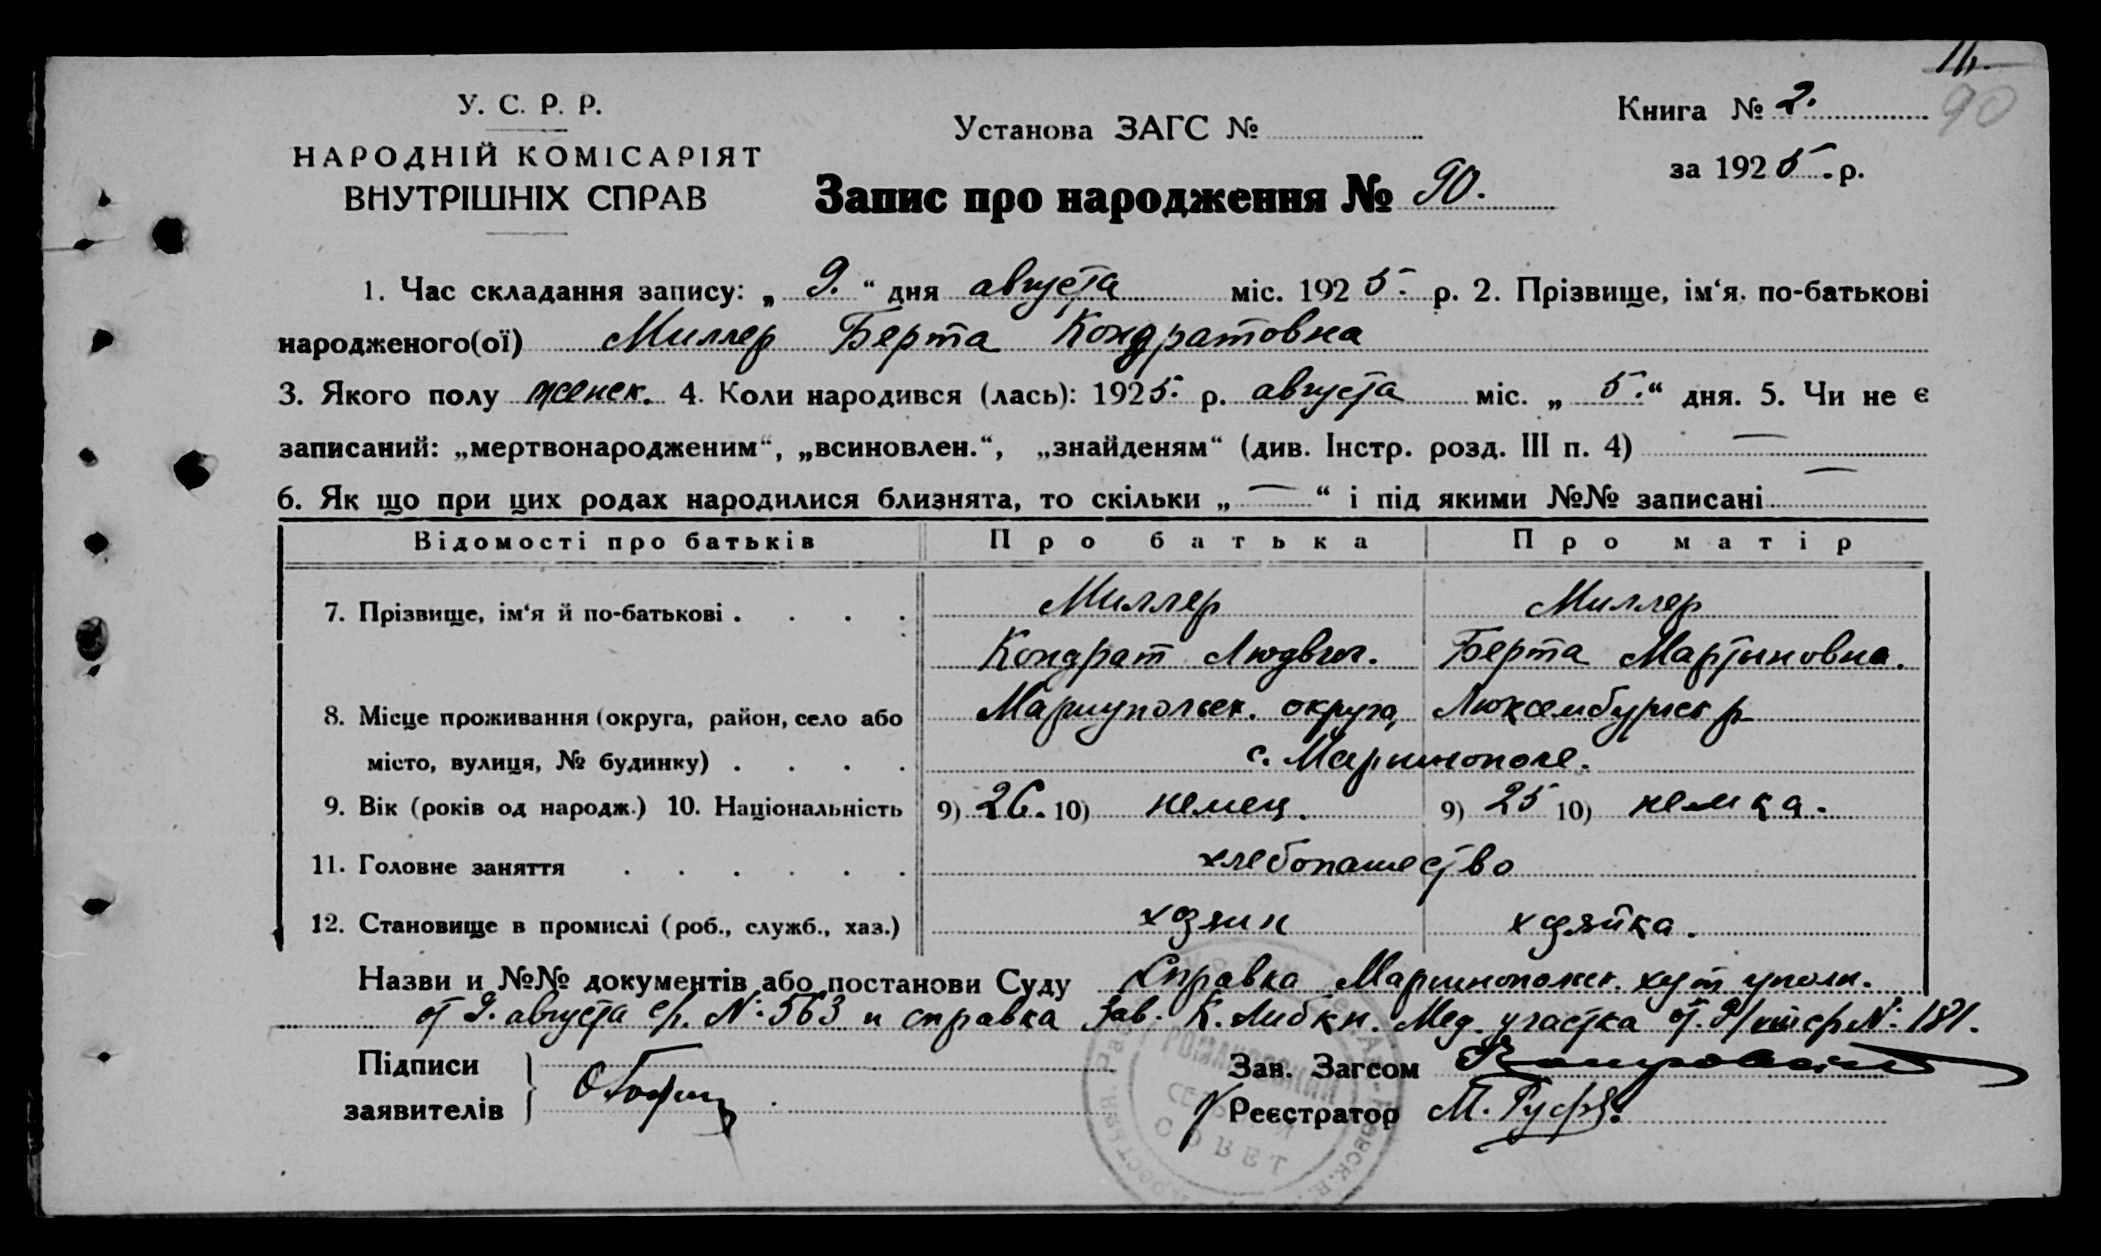 11.
У. С. Р. Р.
НАРОДНІЙ КОМІСАРІЯТ
ВНУТРІШНІХ СПРАВ
Установа ЗАГС №
Запис про народження № 90.
Книга № 2.
90
за 1925.р.
1. Час складання запису: „ 9. “ дня августа міс. 1925. р. 2. Прізвище, ім‘я. по-батькові
народженого(ої) Миллер Берта Кондратовна
3. Якого полу женск. 4. Коли народився (лась): 1925. р. августа міс. „ 5. “ дня. 5. Чи не є
записаний: „мертвонародженим“, „всиновлен.“, „знайденям“ (див. Інстр. розд. III п. 4) —
6. Як що при цих родах народилися близнята, то скільки „ — “ і під якими №№ записані —
Відомості про батьків Про батька Про матір
7. Прізвище, ім‘я й по-батькові . . . . Миллер Миллер
Кондрат Людвиг. Берта Мартыновна.
8. Місце проживання (округа, район, село або Мариупольск. округа, Люксембургск р.
місто, вулиця, № будинку) . . . . с. Мариинополе.
9. Вік (років од народж.) 10. Національність 9) 26. 10) немец. 9) 25 10) немка.
11. Головне заняття . . . . . . хлебопашество
12. Становище в промислі (роб., служб., хаз.) хозяин хозяйка.
Назви и №№ документів або постанови Суду Справка Мариинопольск. хут уполн.
от 9. августа с/г. №: 563 и справка Зав. К. Либкн. Мед. участка от. 9/ №: 181.
Підписи
заявителів
Зав. Загсом
Реєстратор М.
РОМАНОВСКИЙ
СЕЛЬСКИЙ
СОВЕТ